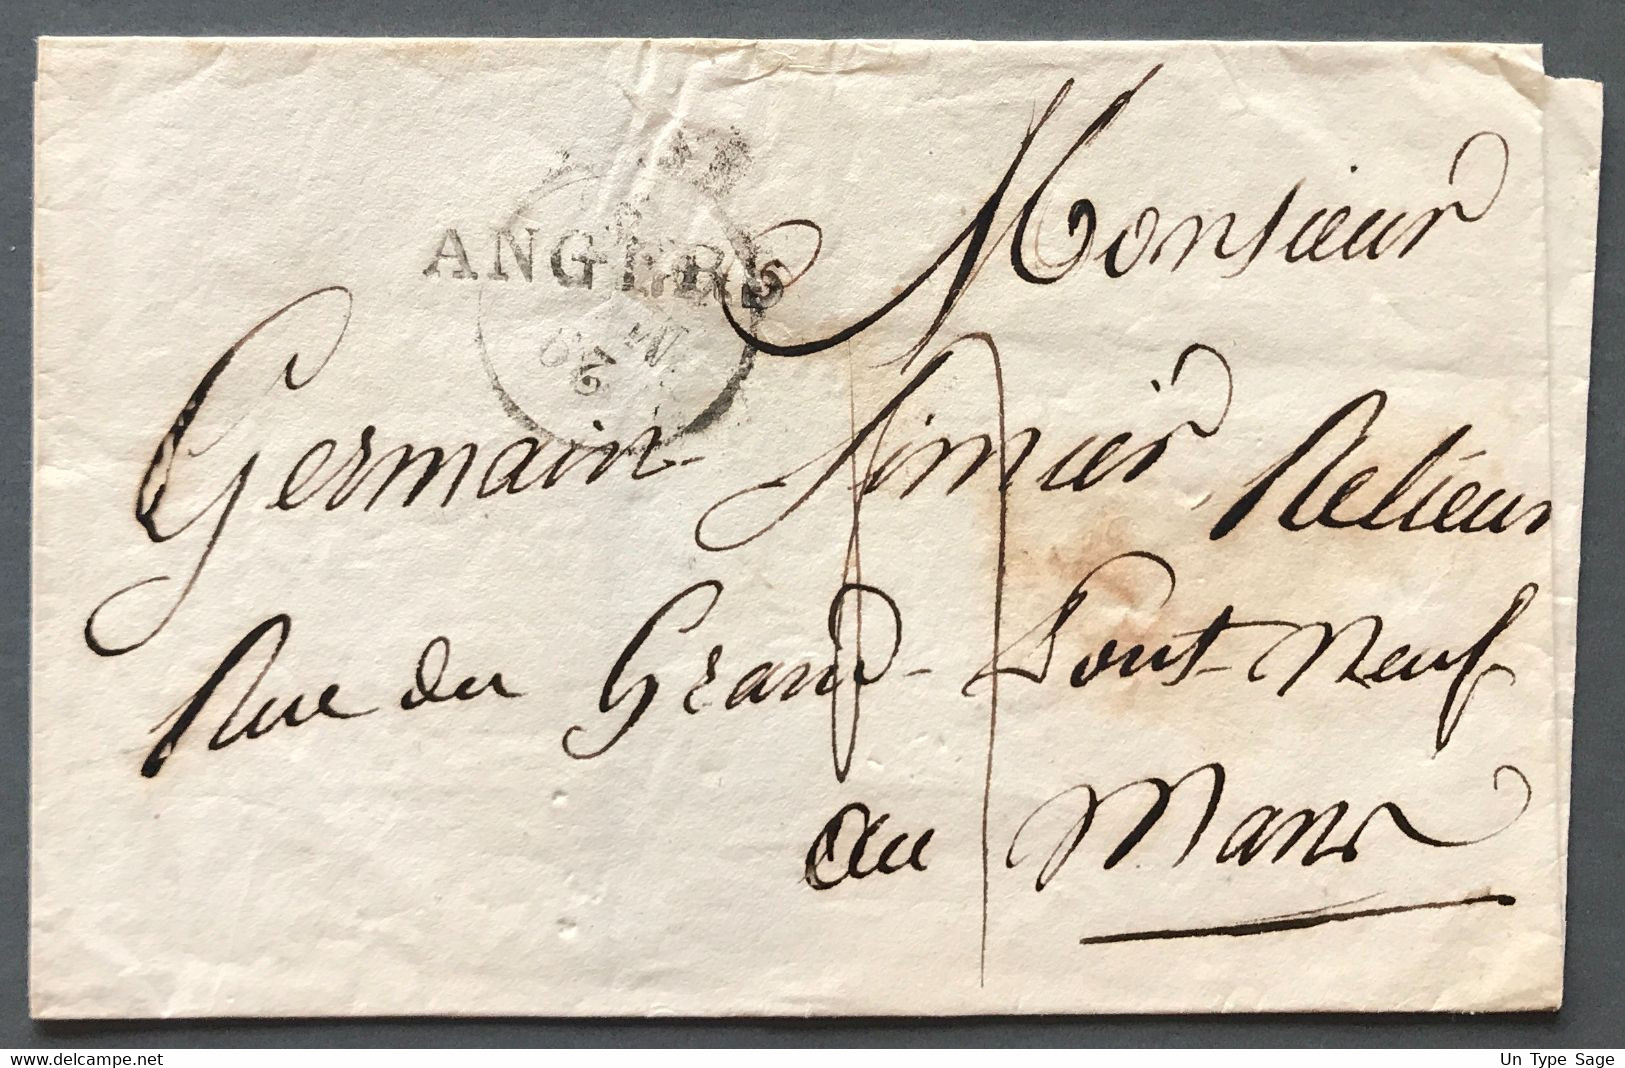 ANGERS
Monsieur
Germain Simier, Relieur
Rue du Grand-Pont-Neuf
au Mans
www.delcampe.net
Un Type Sage